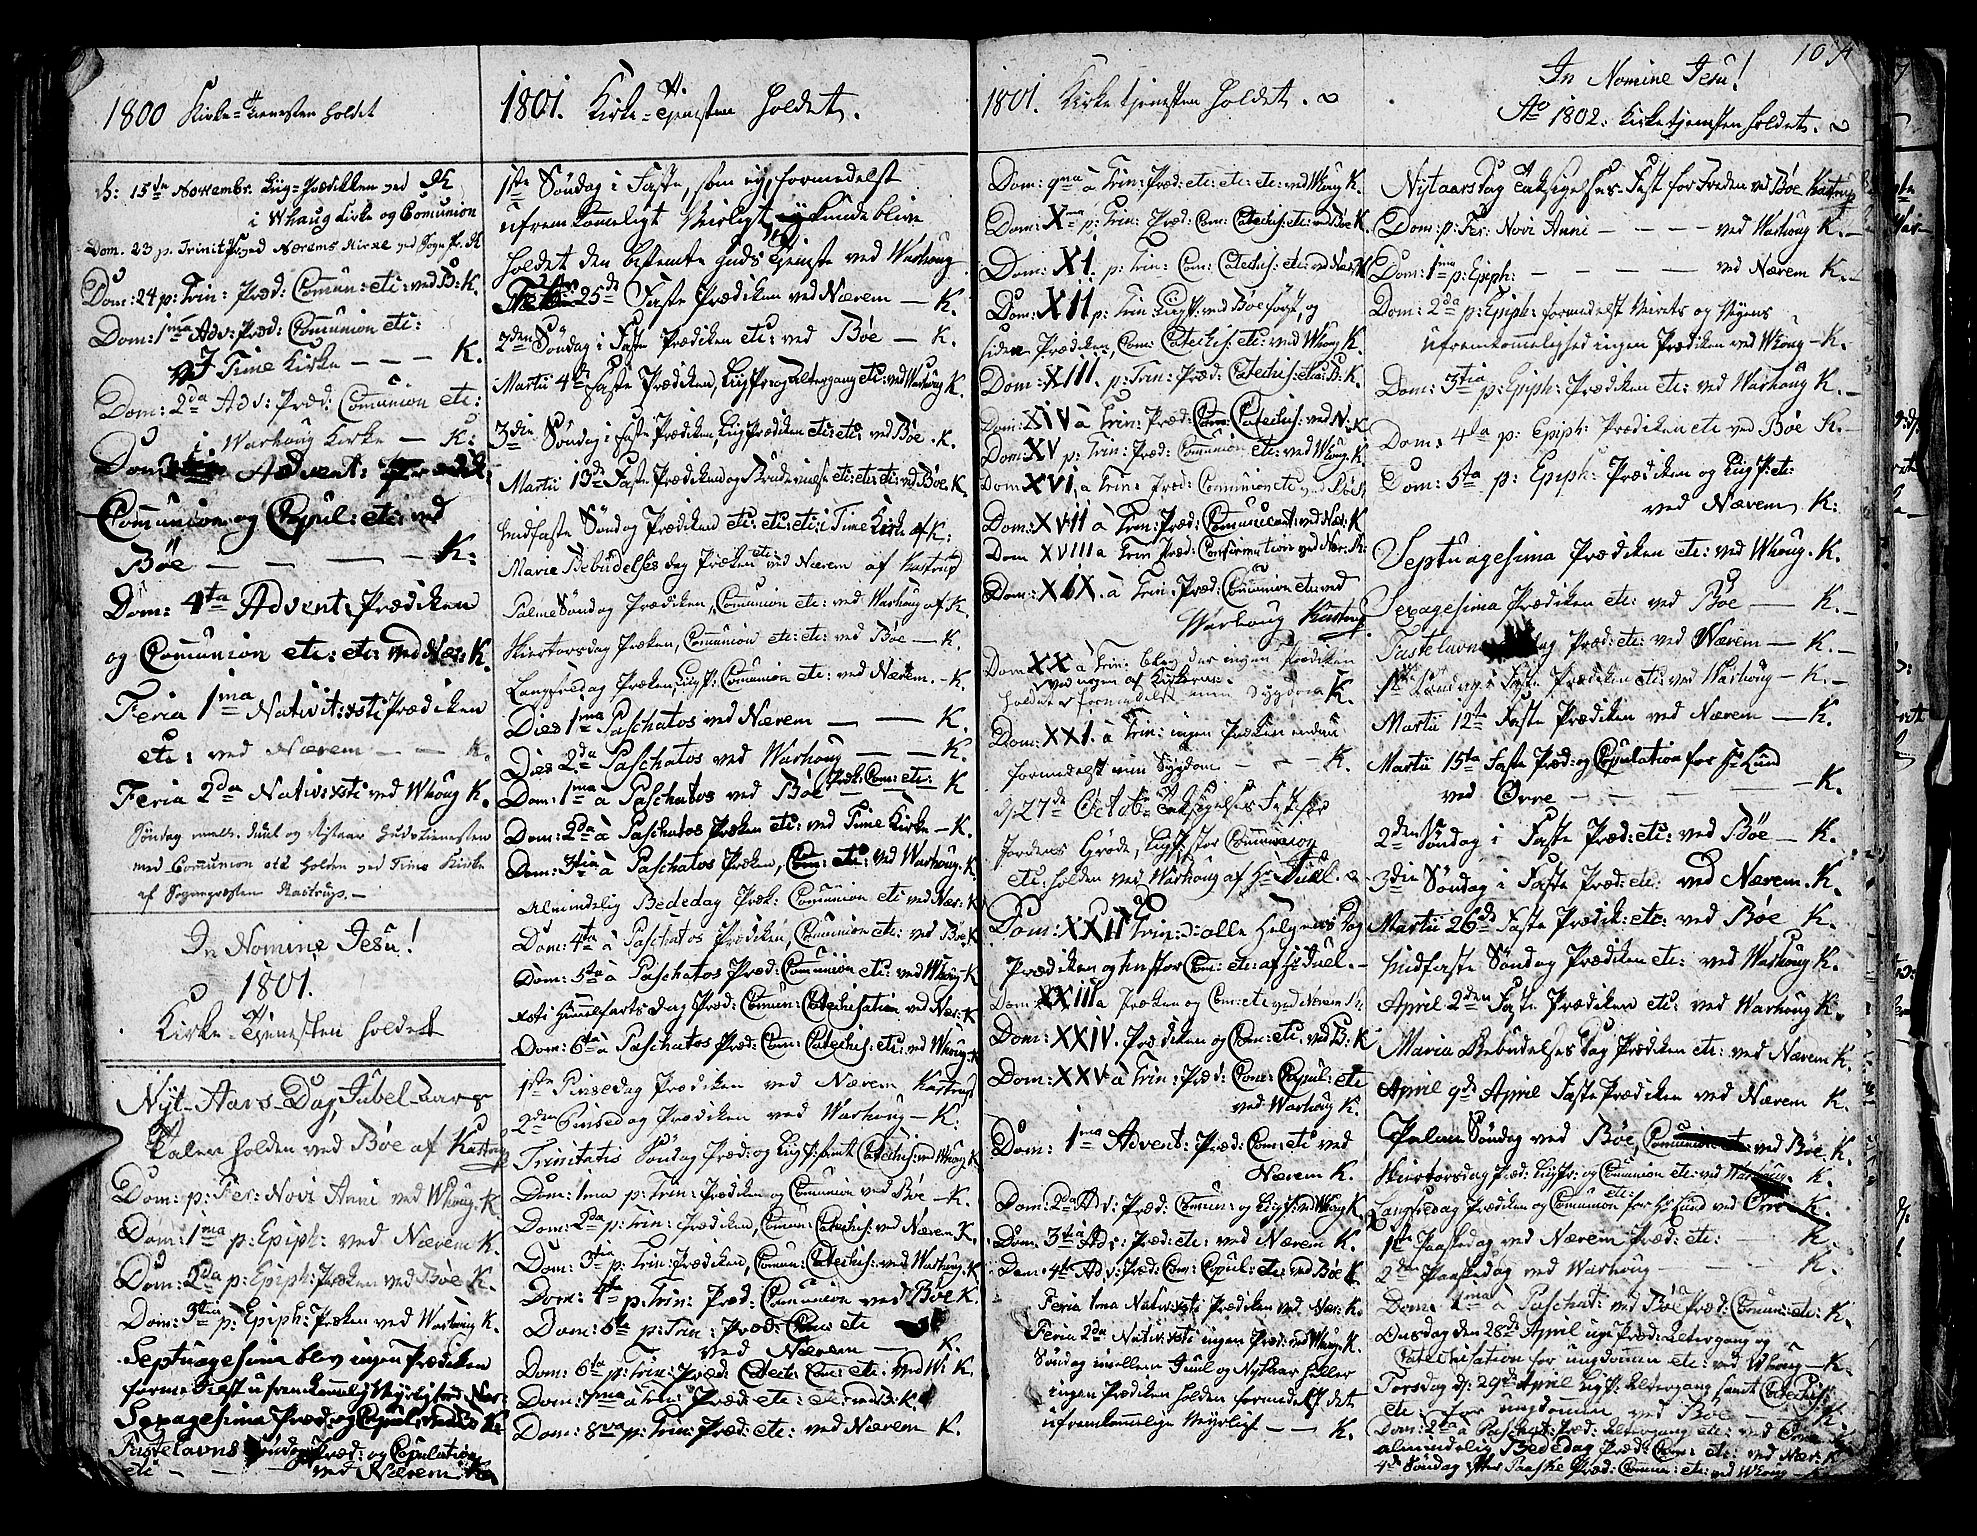 1800 Kirke-Tienesten holdet
d: 15de Novembr. Liig-Prædikken ved K
i Whaug Kirke og Comunion
Dom. 23 p. Trinit: ved Nærems Kirke ved Sogn Pr. K
Dom: 24 p: Trin: Præd: Comun: etc: ved B: K.
Dom: 1ma Adv: Præd: Comunion etc:
Time Kirke — — — K.
Dom: 2da Adv: Præd: Comunion etc:
i Warhoug Kirke — K:
Dom: Advent:
Comunion og Copul: etc: ved
Böe — — — — K:
Dom: 4ta Advent: Prædiken
og Comunion etc: etc: ved Nær: K.
Feria 1ma Nativit: xsti Prædiken
etc: ved Nærem — — K.
Feria 2da Nativ: xsti ved Whoug K.
Söndag mell. Juul og Nytaar Gudstienesten
med Comunion etc holden ved Time Kirke
af Sognepræsten Kastrup. —
In Nomine Jesu!
1801.
Kirke-Tjenesten holdet
Nyt-Aars-Dag, Jubel-Aars
Talen holden ved Böe af Kastrup
Dom: p: Fer: Novi Anni ved Whoug K
Dom: 1ma p: Epiph: ved Nærem K.
Dom: 2da p: Epiph: Præken ved Böe K.
Dom: 3tia p: Epiph: Præken ved Warhoug K.
Septuagesima blev ingen Prædiken
formedelst ufremkommelig Veyrligt ved Nær:
Sexagesima Præd: og Copul: ved Bö K.
Fastelavns Söndag Præd: og Copulation
etc — — ved Nærem K.
1801. Kirke-Tjenesten holdet.
1ste Söndag i Faste, som ey, formedelst
ufremkommeligt Veirligt, kunde blive
holdet den bestemte Guds Tjeniste ved Warhoug
25de Faste Prædiken ved Nærem — K.
2den Söndag i Faste Prædiken etc: ved Böe — K.
Martii 4de Faste Prædiken, Liigpr: og Altergang etc: ved Warhoug K.
3die Söndag i Faste Prædiken Liig Prædiken etc: etc: ved Böe. K.
Martii 13de Faste Prædiken og Brudevielse etc: etc: etc: ved Böe K.
Midfaste Söndag Prædiken etc: etc: etc: i Time Kirke af K:
Mariæ Bebudelses dag Præken etc: ved Nærem af Kastrup
Palme Söndag Prædiken, Comunion etc: ved Warhoug af K.
Skiertorsdag Præken, Comunion etc: etc: ved Böe — K.
Langfredag Præken, Liigp: Comunion etc: ved Nærem. — K.
Dies 1ma Paschatos ved Nærem — — K.
Dies 2da Paschatos ved Warhoug — — K.
Dom: 1ma à Paschatos ved Böe Præk: Com: etc: K
Dom: 2da à Paschatos Præken etc: ved Time Kirke — K.
Dom: 3tia à Paschatos Præken, Com: etc: ved Warhoug. K.
Almindelig Bededag Præk: Comunion etc ved Nær: K
Dom: 4ta à Paschatos Prædiken, Comunion etc: ved Böe K
Dom: 5ta à Paschatos Præd: Comunion etc: ved Whoug K
xsti Himmelfarts Dag Præd: Comun: Catechisation ved Nær: K
Dom: 6ta à Paschatos Præd: Com: Catechis: etc: ved Whoug K
1ste Pinsedag Prædiken ved Nærem Kastrup
2den Pinsedag Prædiken ved Warhoug — K:
Trinitatis Söndag Præd: og Liigp: samt Catechis: ved Whoug K.
Dom: 1ma p: Trin: Prædiken og Comunion ved Böe — K.
Dom: 2da p: Trin: Prædiken, Comun: Catechis: ved Nærem. K.
Dom: 3tia p: Trin: Prædiken, Comun: Catechis: ved Warhoug. K
Dom: 4ta p: Trin: Præd: Comunion ved Böe K.
Dom: 5ta p: Trin: Præd: Com: etc
ved Nærem — K.
Dom: 6ta p: Trin: Præd: Catech: Com: etc: ved W: K.
Dom: 7ma à Trin: Præd: etc: etc: ved B: K.
Dom: 8va p: Trin: Præd: etc: ved Nærem K.
1801. Kirketjenesten holdet.
Dom: 9ma à Trin: Præd: etc: etc: etc: ved Whoug K.
Dom: Xma p: Trin: Præd: Com: Catechis: etc: ved Böe K.
Dom: XI. p: Trin: Com: Catechis: etc: ved Nær: K
Dom: XII p: Trin Liigp: ved Böe först, og
siden Prædiken, Com: Catechis: etc: ved Whoug K.
Dom: XIII. p: Trin: Præd: Catechis: etc: B: K.
Dom: XIV à Trin: Præd: Com: Catechis: ved N: K
Dom: XV p: Trin: Præd: Comunion etc: ved Whoug K.
Dom: XVI, à Trin: Præd: Comunion etc ved Böe K
Dom: XVII à Trin: Præd: Comunicant: ved Nær: K
Dom XVIII à Trin Præd: Confirmation ved Nær: K:
Dom: XIX. à Trin: Præd: Comunion etc ved
Warhoug Kastrup.
Dom: XX à Trin: blev der ingen Prædiken
ved nogen af Kirkerne
holdet formedelst min Sygdom K.
Dom: XXI. à Trin: ingen Præken endnu
formedelst min Sygdom — — — K.
d: 27de Octob: Taksigelses Fest for
Jordens Gröde, Liigp: stor Comunion
etc: holden ved Warhoug af Hr Juel.
Dom: XXII Trin: alle Helgens Dag
Prædiken og en stor Com: etc: af Hr Juel. —
Dom: XXIII à Præken og Com: etc ved Nærem K:
Dom: XXIV. Prædiken og Com: etc. ved B: K
Dom: XXV à Trin: Præd: Com: Copul: etc
ved Warhoug K.
Dom: 1ma Advent: Præd: Com: etc ved
Nærem K.
Dom: 2da Adv: Præd: Comun: og Liigp: ved Whoug K
Dom: 3tia Adv: Præd: etc: ved Nærem K.
Dom: 4ta Adv: Præd: Com: Copul: etc: ved Böe K
Feria 1ma Nativ: xsti Prædiken ved Nær: K.
Feria 2da Nativ: xsti ingen Præd: ved Whoug K.
Söndag imellem Juul og Nytaar heller
ingen Prædiken holden formedelst det
ufremkommelige Veyrligt — — K.
104
In Nomine Jesu!
Ao 1802. Kirketjenesten holdet.
Nytaarsdag Taksigelses-Fest for Freden ved Böe Kastrup
Dom: p: Fer: Novi Anni — — — — ved Warhoug K. —
Dom: 1ma p: Epiph: — — — — ved Nærem K. —
Dom: 2da p: Epiph: formedelst Veirets og Vejens
ufremkommelighed ingen Prædiken ved Whoug — K. —
Dom: 3tia p: Epiph: Prædiken etc: ved Warhoug K. —
Dom: 4ta p: Epiph: Prædiken etc ved Böe K. —
Dom: 5ta p: Epiph: Prædiken og Liigp: etc:
ved Nærem K:
Septuagesima Prædiken etc: ved Whoug. K.
Sexagesima Prædiken etc: ved Böe — K. —
Fastelavns dag Præd: etc: ved Nærem — K. —
1ste Söndag i Faste Prædiken etc: ved Warhoug — K. —
Martii 12te Faste Prædiken ved Nærem — K.
Martii 15ta Faste Præd: og Copulation for Hr Lund
ved Orre — — — — K.
2den Söndag i Faste Præd: etc: ved Böe — K.
3die Söndag i Faste Præd: etc: ved Nærem. K.
Martii 26de Faste Prædik: etc: ved Böe K.
Midfaste Söndag Prædiken etc: ved Warhoug K.
April 2den Faste Prædiken etc: ved Warhoug K.
Maria Bebudelses dag Prædiken etc: ved Nærem K.
April 9de April Faste Prædiken ved Nærem K.
Palme Söndag ved Böe, ved Böe. K.
Skiertorsdag Præd: Liigpr: og Comunion etc: ved Warhoug. K.
Langfredag Prædiken og Comunion etc: for Hr Lund ved Orre — K.
1ste Paaskedag ved Nærem Præd: etc: K.
2den Paaskedag ved Warhoug — — — K.
Dom: 1ma à Paschat: ved Böe Præd: Comun: etc: K
Onsdag den 28de April Præd: Altergang og
Catechisation for ungdommen etc: ved Whoug — K
Torsdag d: 29de April Liigp: Altergang samt Catechis:
etc: for ungdommen ved Böe — K.
Dom: 2da à Paschat: Præd: Altergang etc: ved Orre
almindelig Bededag Præd: Com: etc: ved Nær: K
4de Söndag efter Paaske Præd: Comun: etc: ved Whoug — K